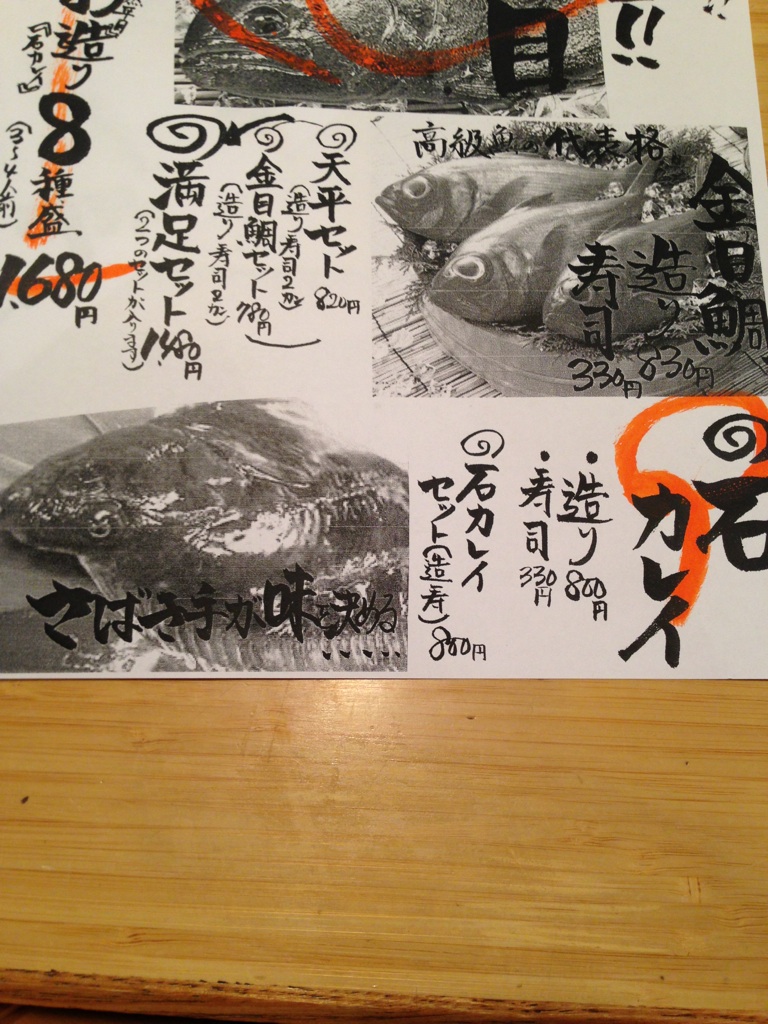 !!
日
造り
『石カレイ』
8種盛
(3~4人前)
1.680円
高級魚の代表格
金目鯛
造り 830円
寿司 330円
天平セット
(造り寿司2カン) 820円
金目鯛セット
(造り寿司2カン) 780円
満足セット
(2つのセットが入ります) 1,480円
石カレイ
・造り 800円
・寿司 330円
石カレイ
セット(造、寿) 800円
さばき手が味を決める
.....